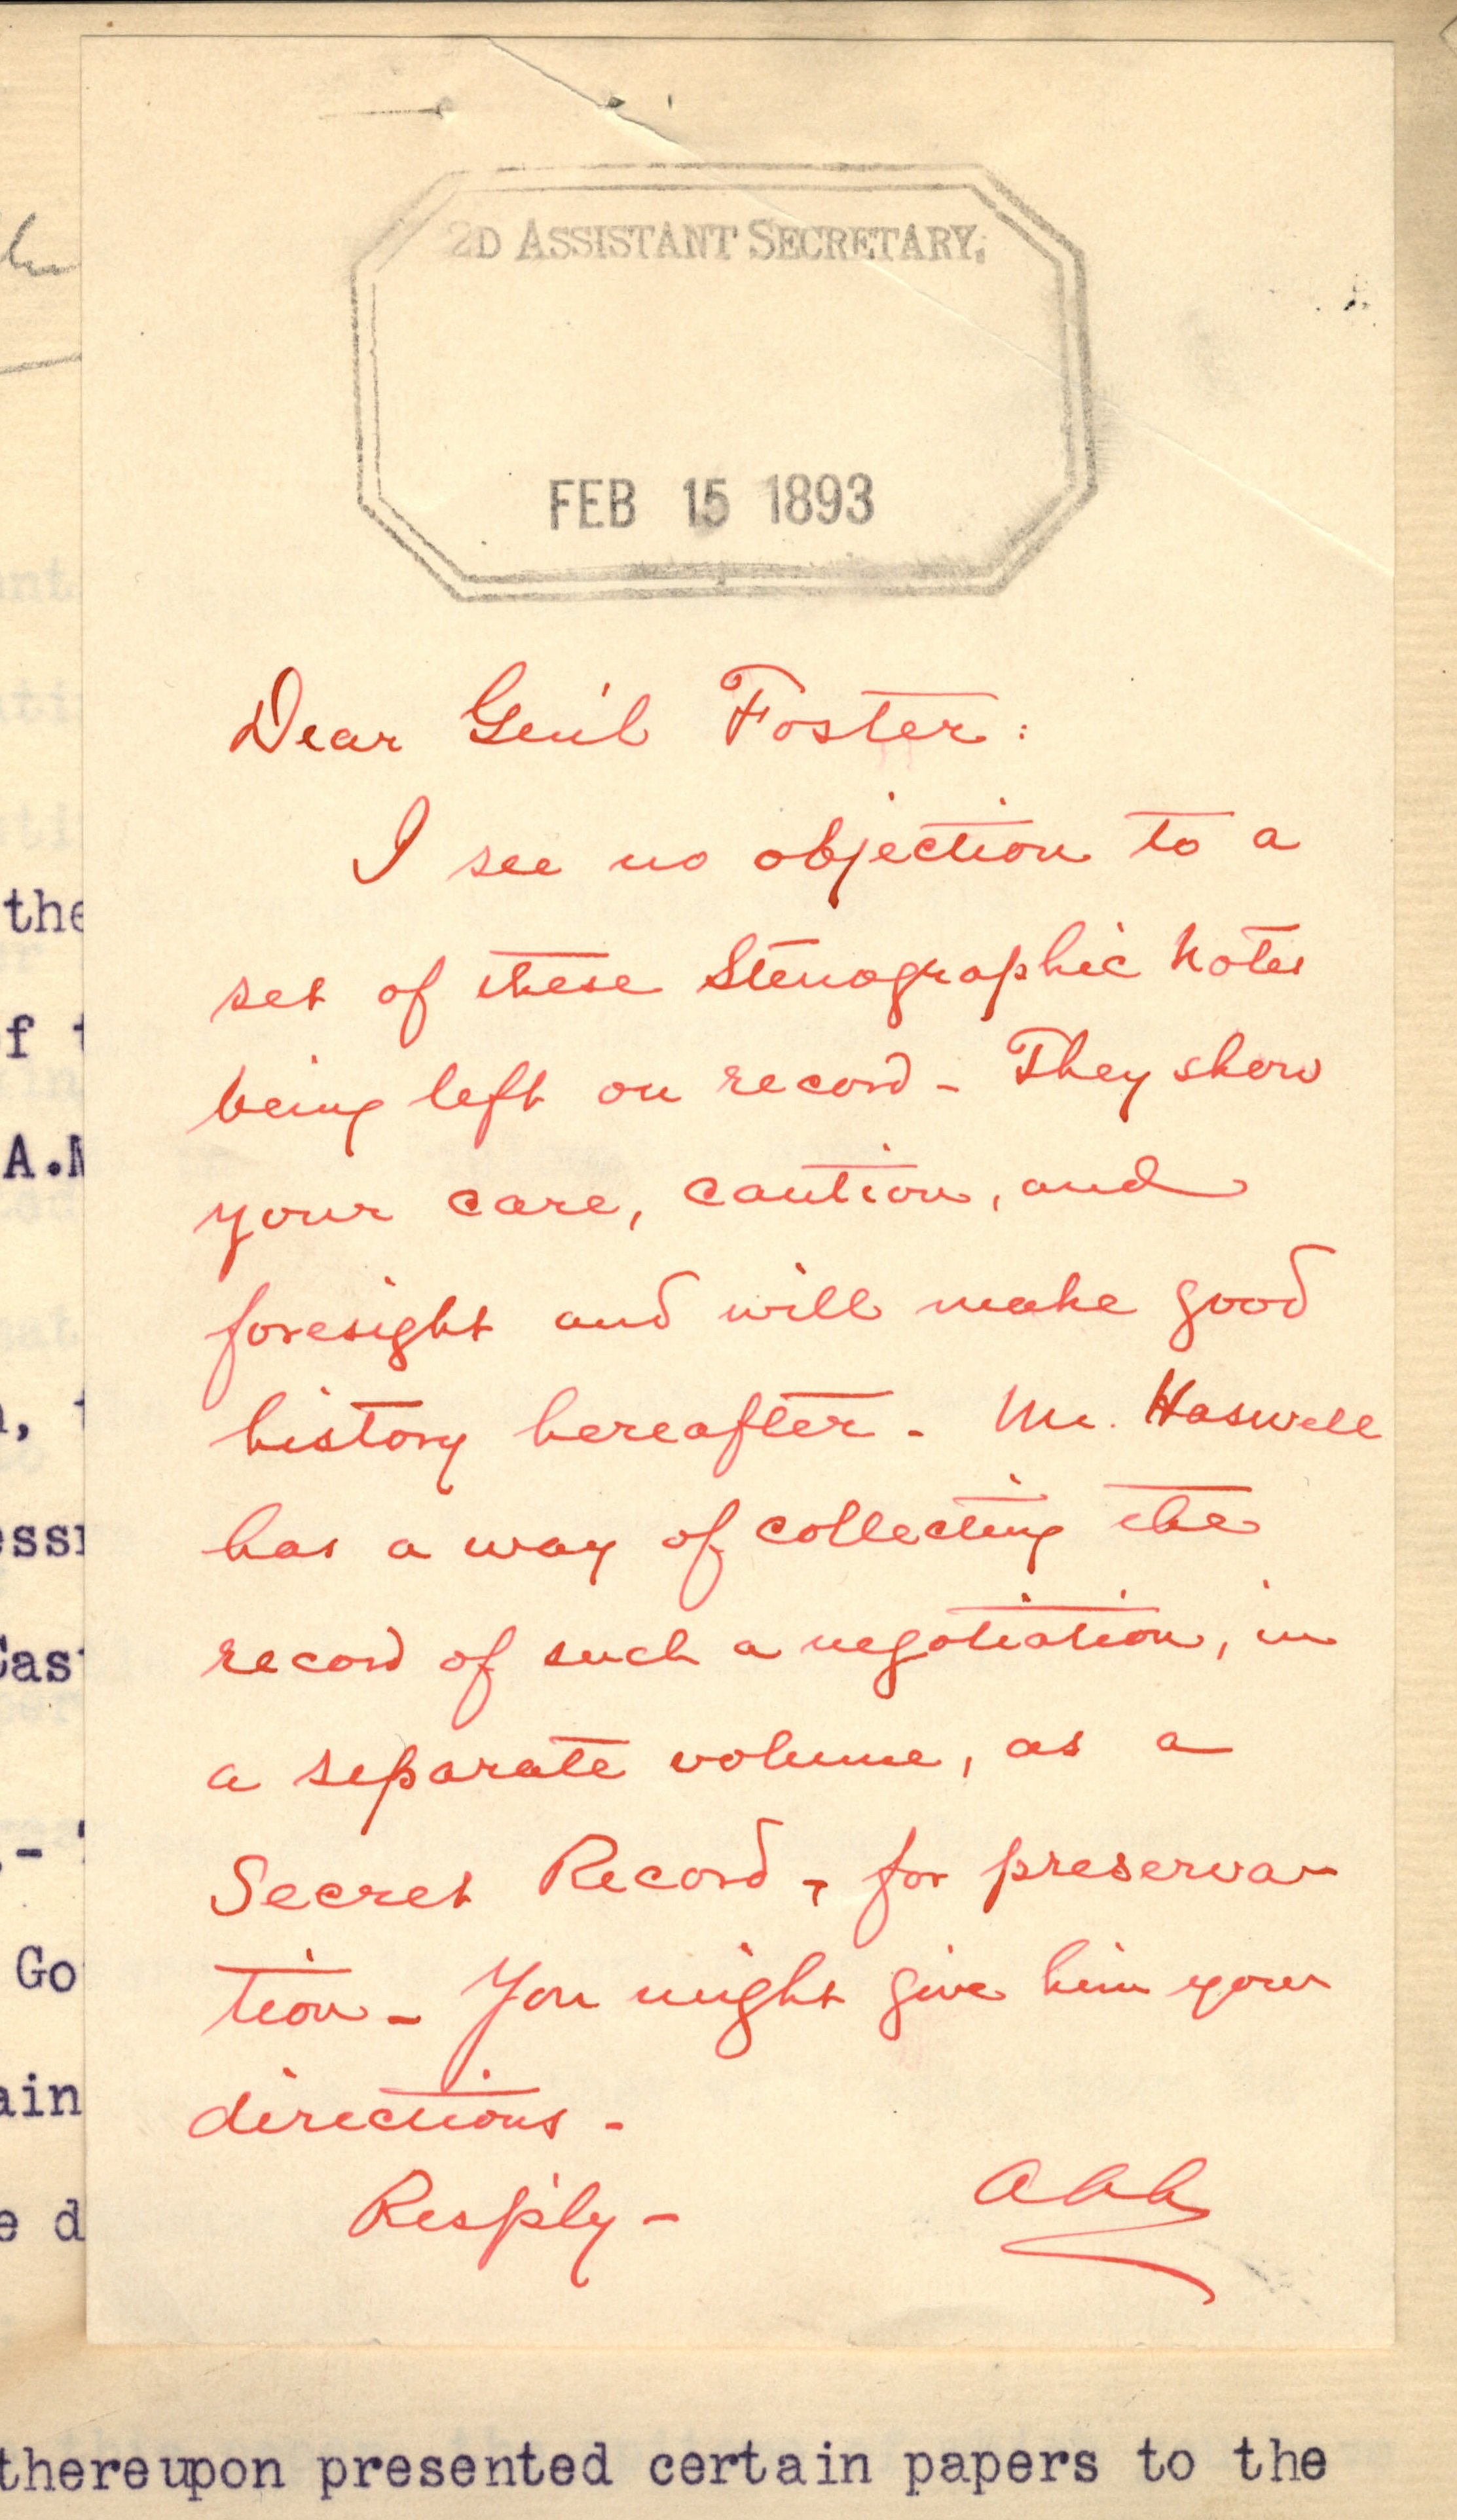 2D ASSISTANT SECRETARY.
FEB 15 1893
Dear Gen'l Foster:
I see no objection to a
set of these Stenographic Notes
being left on record - They show
your care, caution, and
foresight and will make good
history hereafter. Mr. Haswell
has a way of collecting the
record of such a negotiation, in
a separate volume, as a
Secret Record, for preserva-
tion - You might give him your
directions -
Resp'ly -
AAA
the
f t
A.M
, t
Go
ain
e d
thereupon presented certain papers to the